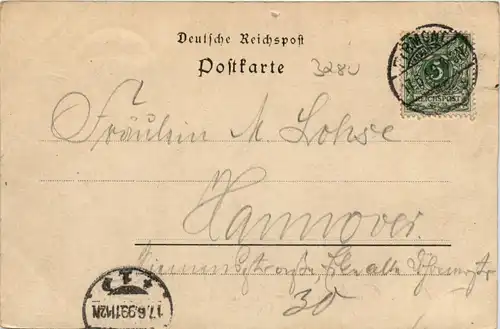 Deutsche Reichspost
Postkarte
3280
PYRMONT
5
REICHSPOST
Fräulein M. Lohse
Hannover.
30
* 1 *
17.6.99.11-12N